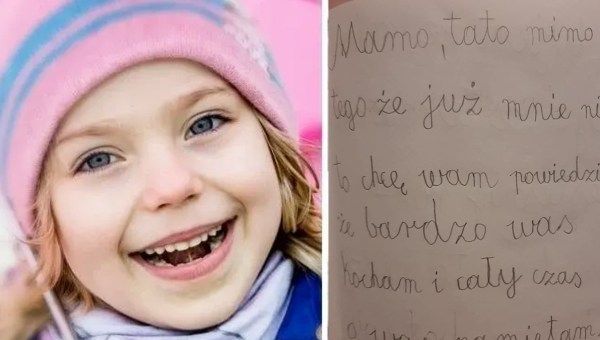 Mamo, tato mimo
tego że już mnie ni
to chcę wam powiedzi
że bardzo was
kocham i cały czas
o was pamiętam